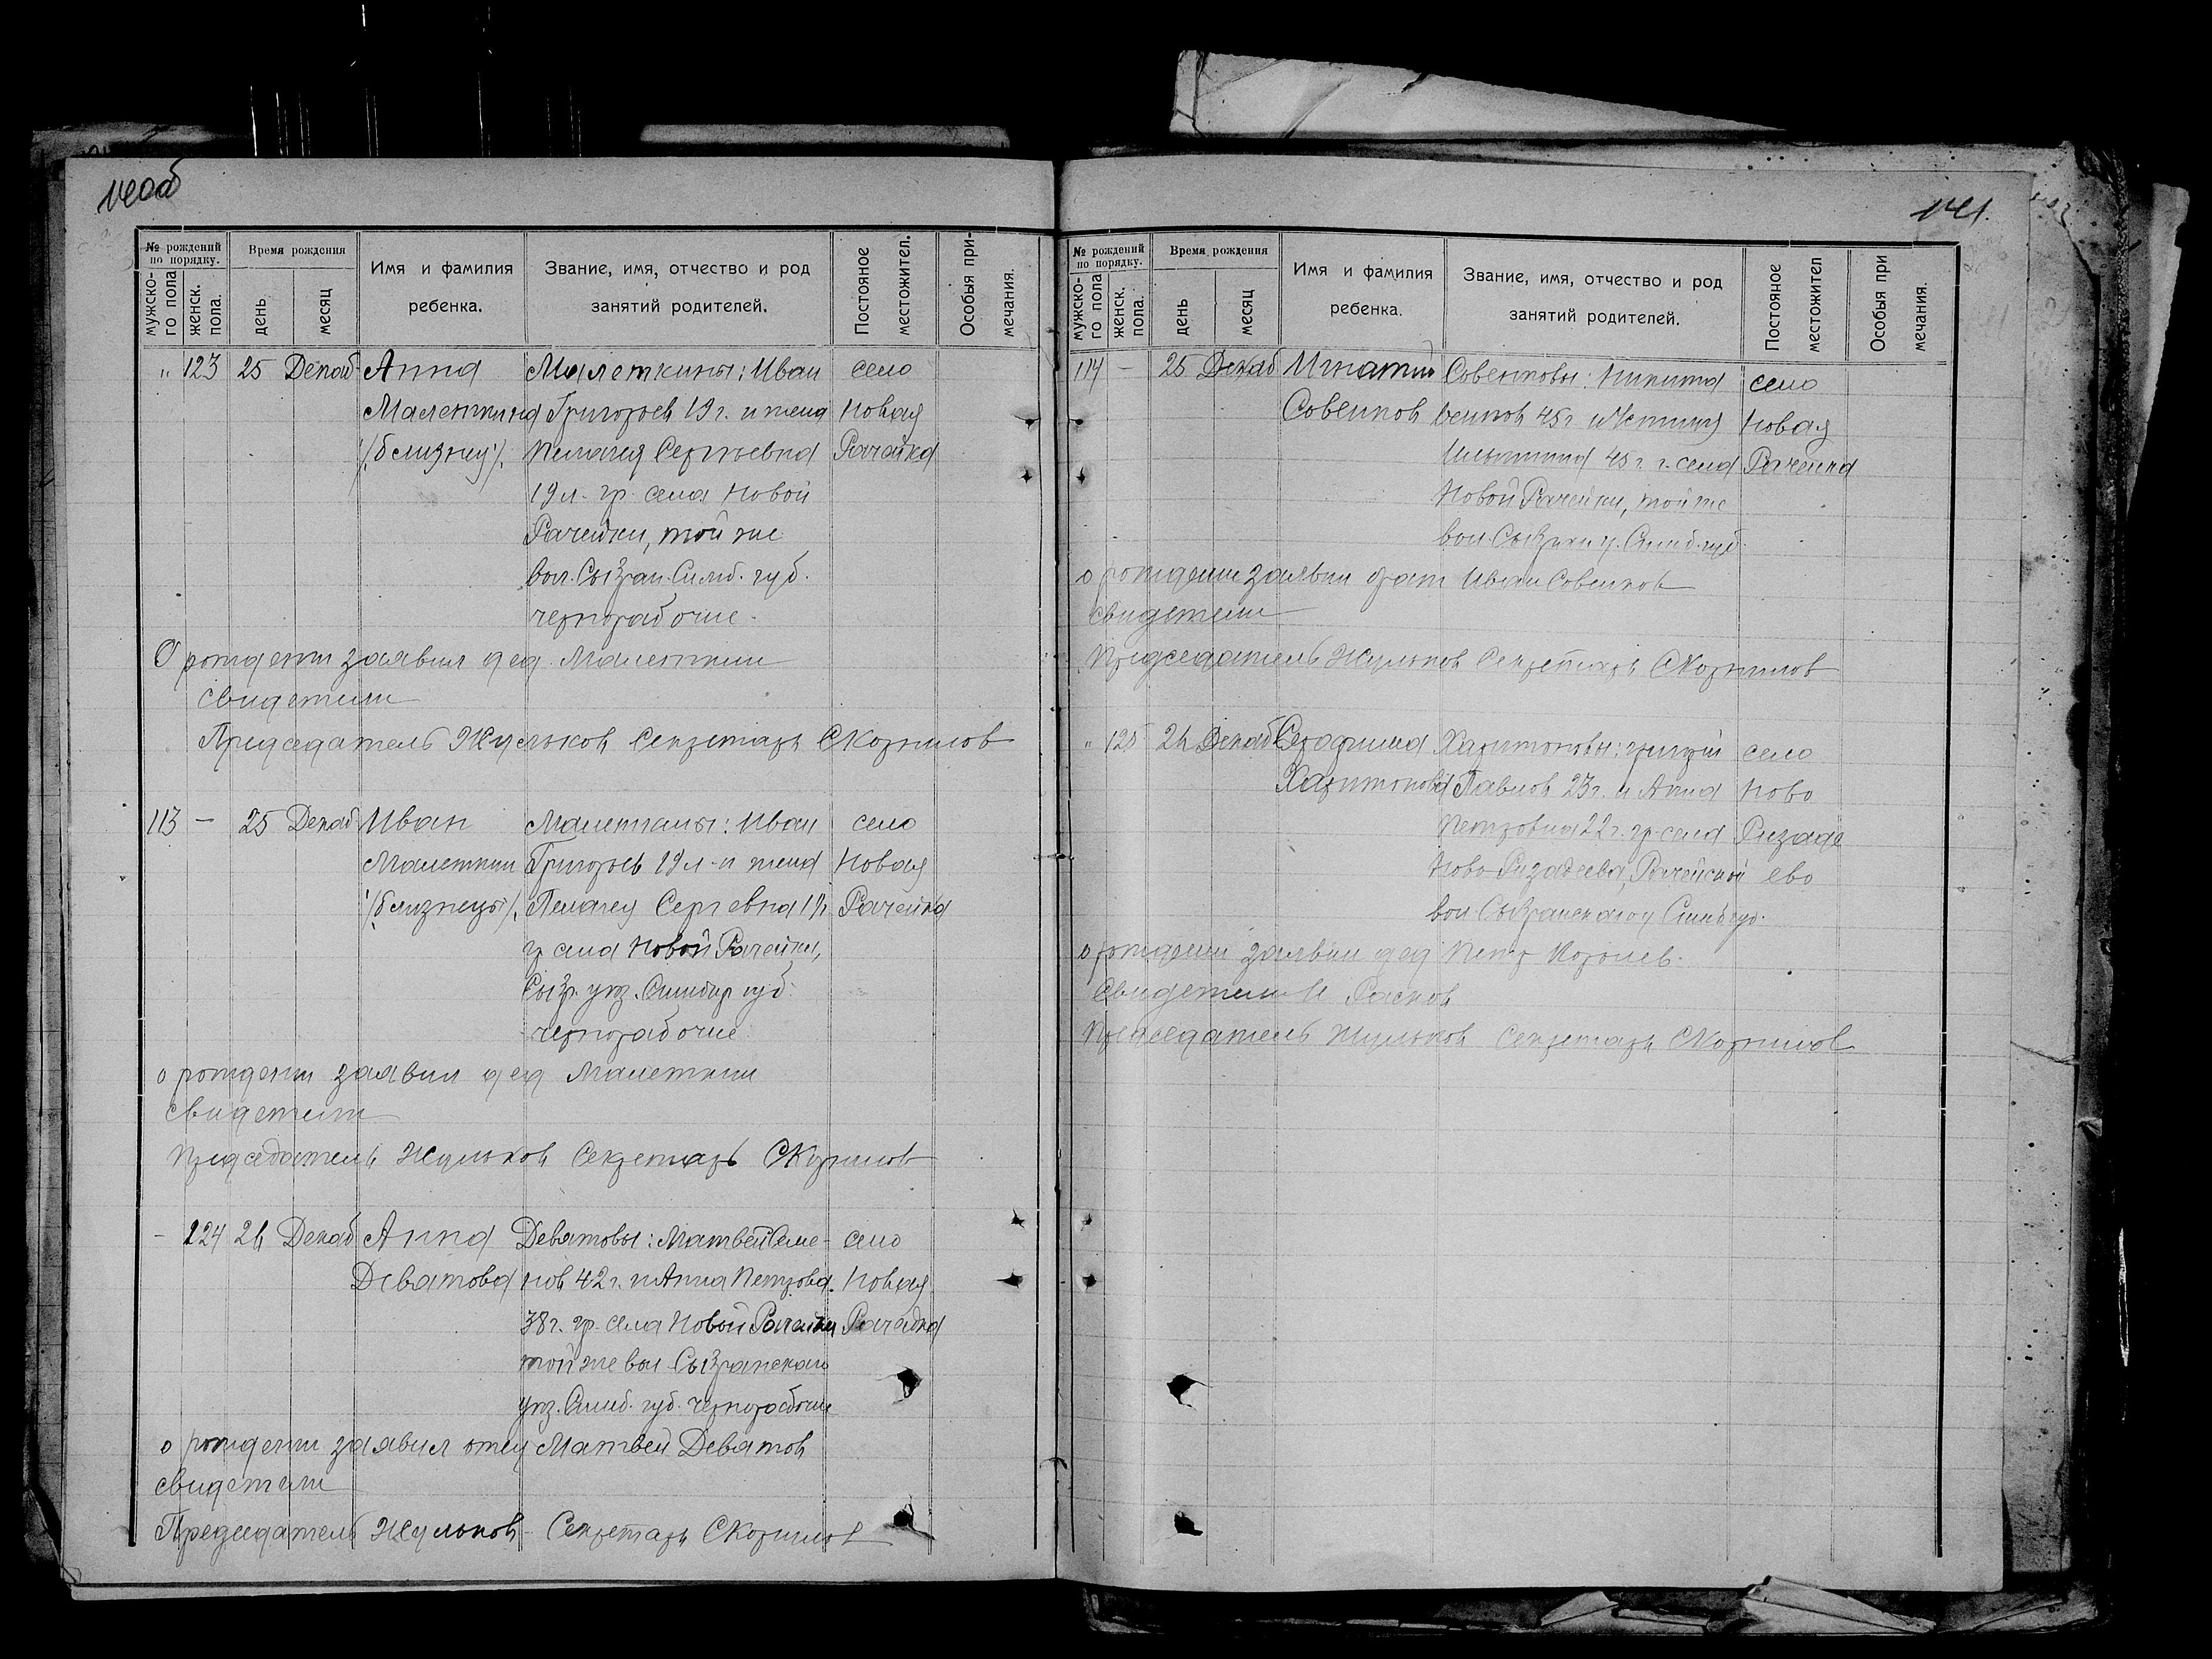 140об
№ рождений по порядку.
мужско-го пола
женск. пола.
Время рождения
день
месяц
Имя и фамилия ребенка.
Звание, имя, отчество и род занятий родителей.
Постояное местожител.
Особыя при-мечания.
" 123 25 Декаб Анна Малеткины: Иван село
Малеткина Григорьев 19 г. и жена Новая
/близнец/. Пелагея Сергеевна Рачейка
19 л. гр. села Новой
Рачейки, той же
вол. Сызран. Симб. губ.
чернорабочие.
О рождении заявил дед Малеткин
свидетели
Председатель Жульков Секретарь СКорнилов
113 – 25 Декаб Иван Малеткины: Иван село
Малеткин Григорьев 19 л. и жена Новая
/близнецы/. Пелагея Сергевна 19 Рачейка
гр села Новой Рачейки,
Сызр. уез. Симбир губ.
чернорабочие
о рождении заявил дед Малеткин
свидетели
Председатель Жульков Секретарь СКорнилов
– 124 26 Декаб Анна Девятовы: Матвей Семе- село
Девятова нов 42 г. и Анна Петровa. Новая
38 г. гр. села Новой Рачейки Рачейка
той же вол Сызранскаго
уез. Симб. губ. чернорабочие
о рождении заявил отец Матвей Девятов
свидетели
Председатель Жульков Секретарь СКорнилов
141.
№ рождений по порядку.
мужско-го пола
женск. пола.
Время рождения
день
месяц
Имя и фамилия ребенка.
Звание, имя, отчество и род занятий родителей.
Постояное местожител
Особыя при мечания.
114 – 25 Декаб Игнатий Совенковы: Никита село
Совенков 45 г. и Устиния Новая
45 г. г. села Рачейка
Новой Рачейки, той же
вол. Сызран у. Симб. губ.
о рождении заявил брат Иван Совенков
свидетели
Председатель Жульков Секретарь СКорнилов
" 125 26 Декаб Серафима Харитоновы: Григрий село
Харитонова Павлов 23 г. и Анна Ново
Петровна 22 г. гр. села Ризаде
Ново Ризадеева, Рачейской ево
вол Сызранскаго у Симб губ.
о рождении заявил дед Петр Королев.
Свидетели И Расков
Председатель Жульков Секретарь СКорнилов